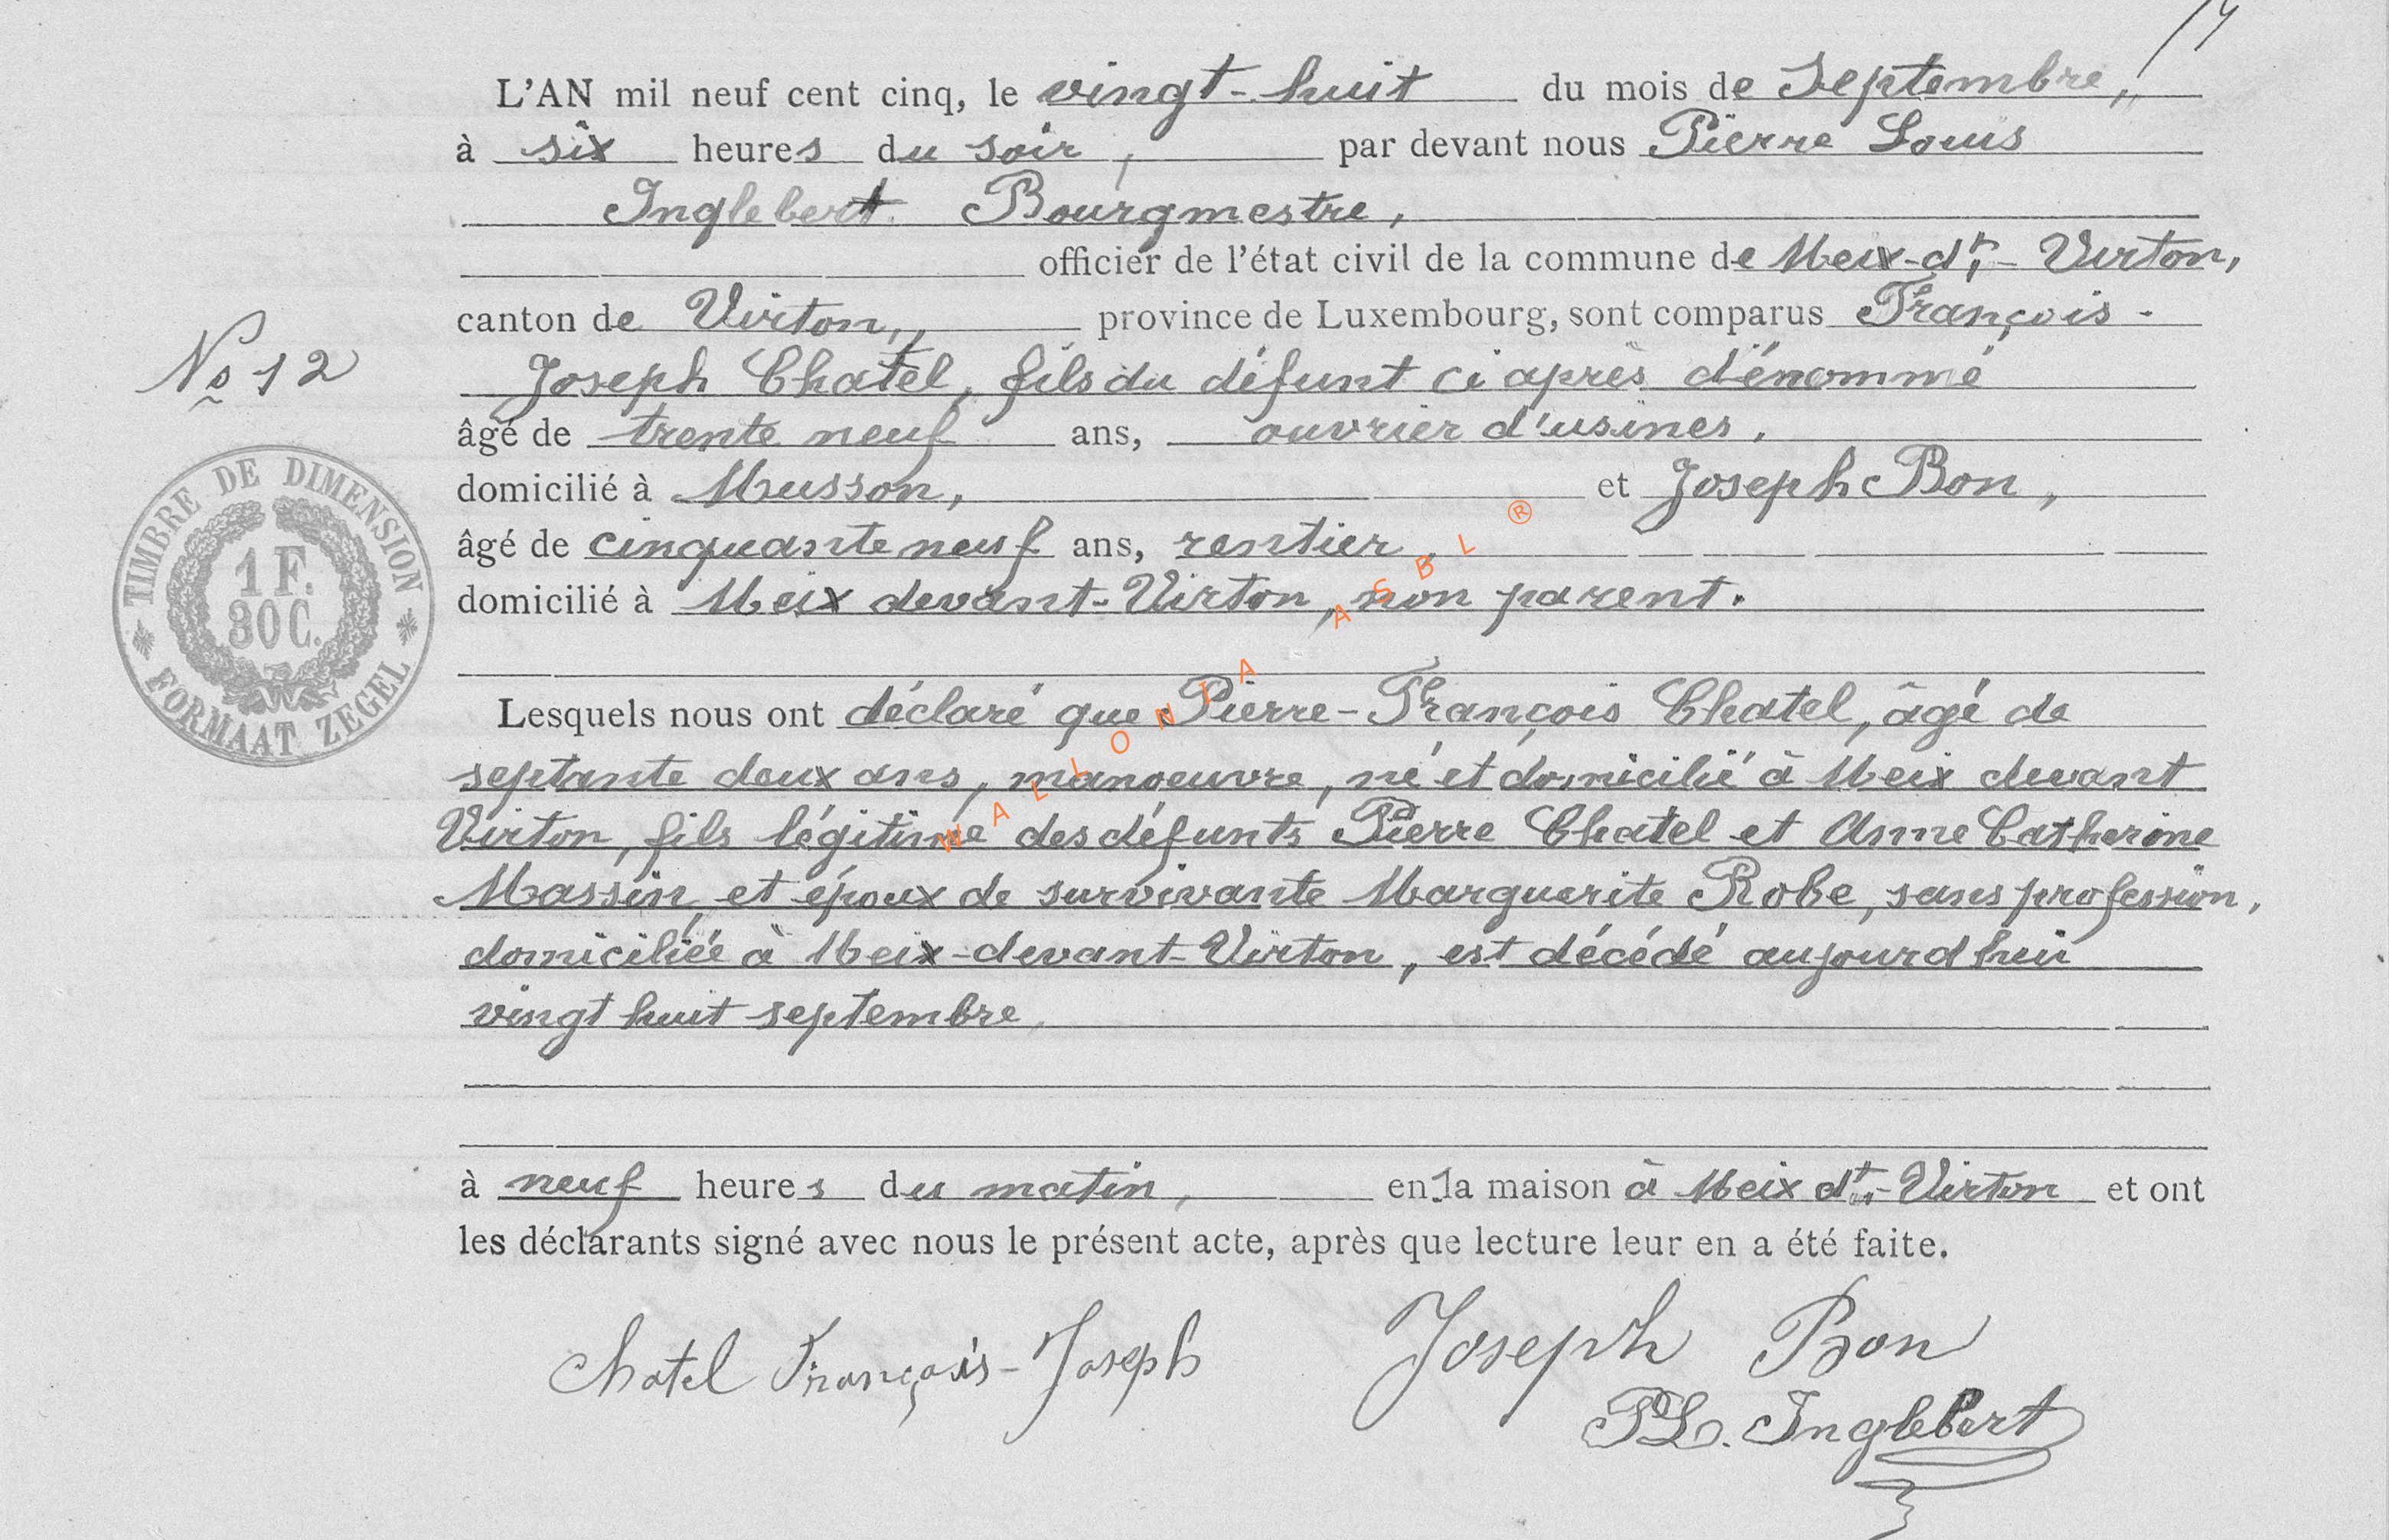 L'AN mil neuf cent cinq, le vingt-huit du mois de Septembre,
à six heures du soir, par devant nous Pierre Louis
Inglebert Bourgmestre,
officier de l'état civil de la commune de Meix-dt,- Virton,
canton de Virton, province de Luxembourg, sont comparus François-
No 12
Joseph Chatel, fils du défunt ci après dénommé
âgé de trente neuf ans, ouvrier d'usines,
domicilié à Musson, et Joseph Bon,
âgé de cinquante neuf ans, rentier,
domicilié à Meix devant-Virton, non parent.
TIMBRE DE DIMENSION
1 F.
30 C.
FORMAAT ZEGEL
Lesquels nous ont déclaré que Pierre-François Chatel, âgé de
septante deux ans, manoeuvre, né et domicilié à Meix devant
Virton, fils légitime des défunts Pierre Chatel et Anne Catherine
Massin, et époux de survivante Marguerite Robe, sans profession,
domiciliée à Meix-devant-Virton, est décédé aujourd'hui
vingt huit septembre
à neuf heures du matin, en la maison à Meix dt,- Virton et ont
les déclarants signé avec nous le présent acte, après que lecture leur en a été faite.
Chatel François-Joseph Joseph Bon
PL. Inglebert
WALLONIA ASBL ®